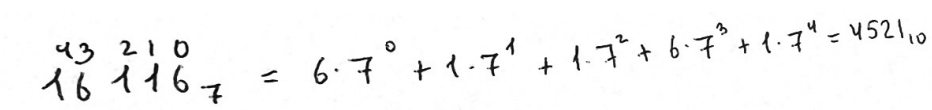 43 210
16116₇ = 6·7⁰ + 1·7¹ + 1·7² + 6·7³ + 1·7⁴ = 4521₁₀